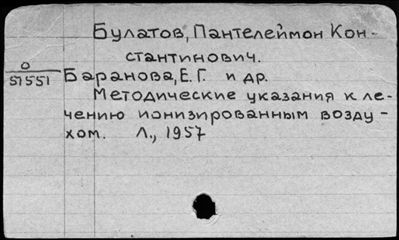 Булатов, Пантелеймон Кон-
стантинович.
О
51551
Баранова, Е.Г. и др.
Методические указания к ле-
чению ионизированным возду-
хом. Л., 1957